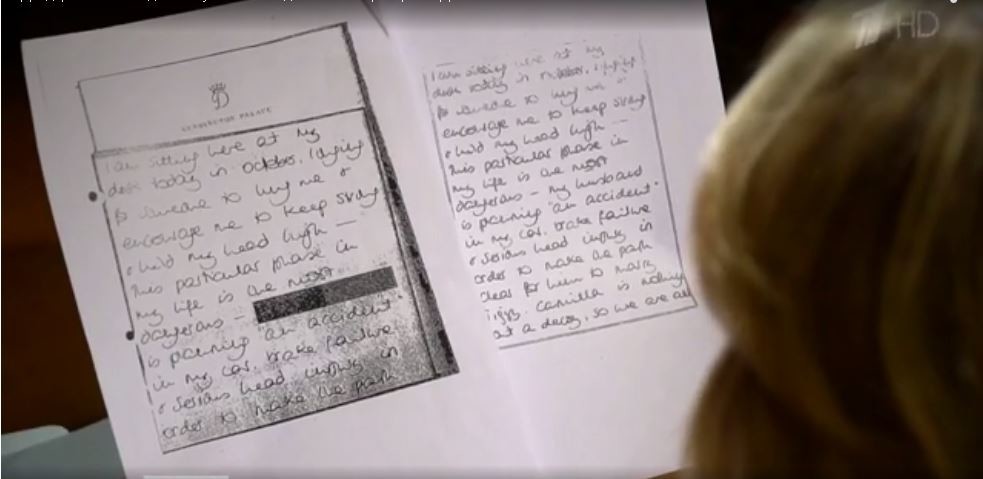 KENSINGTON PALACE
I am sitting here at my
desk today in October, longing
for someone to hug me &
encourage me to keep strong
& hold my head high —
this particular phase in
my life is the most
dangerous —
is planning "an accident"
in my car, brake failure
& serious head injury in
order to make the path
I am sitting here at my
desk today in October, longing
for someone to hug me &
encourage me to keep strong
& hold my head high —
this particular phase in
my life is the most
dangerous — my husband
is planning "an accident"
in my car, brake failure
& serious head injury in
order to make the path
clear for him to marry
Tiggy. Camilla is nothing
but a decoy, so we are all
HD